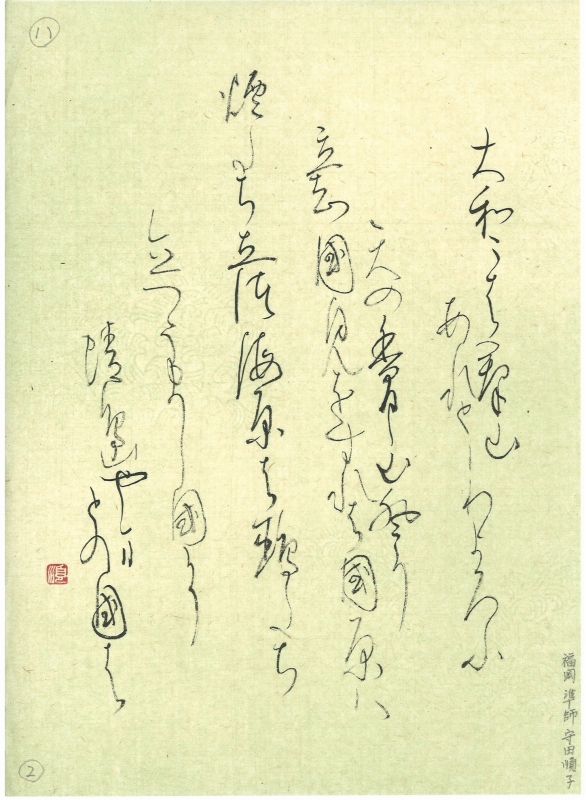 大和には群山
あれととりよろふ
天の香具山登り
立ち國見をすれは國原ハ
煙たち立つ海原は鴎たち
立つうまし國そ
蜻島やま
との國は
順
福岡 準師 守田順子
②